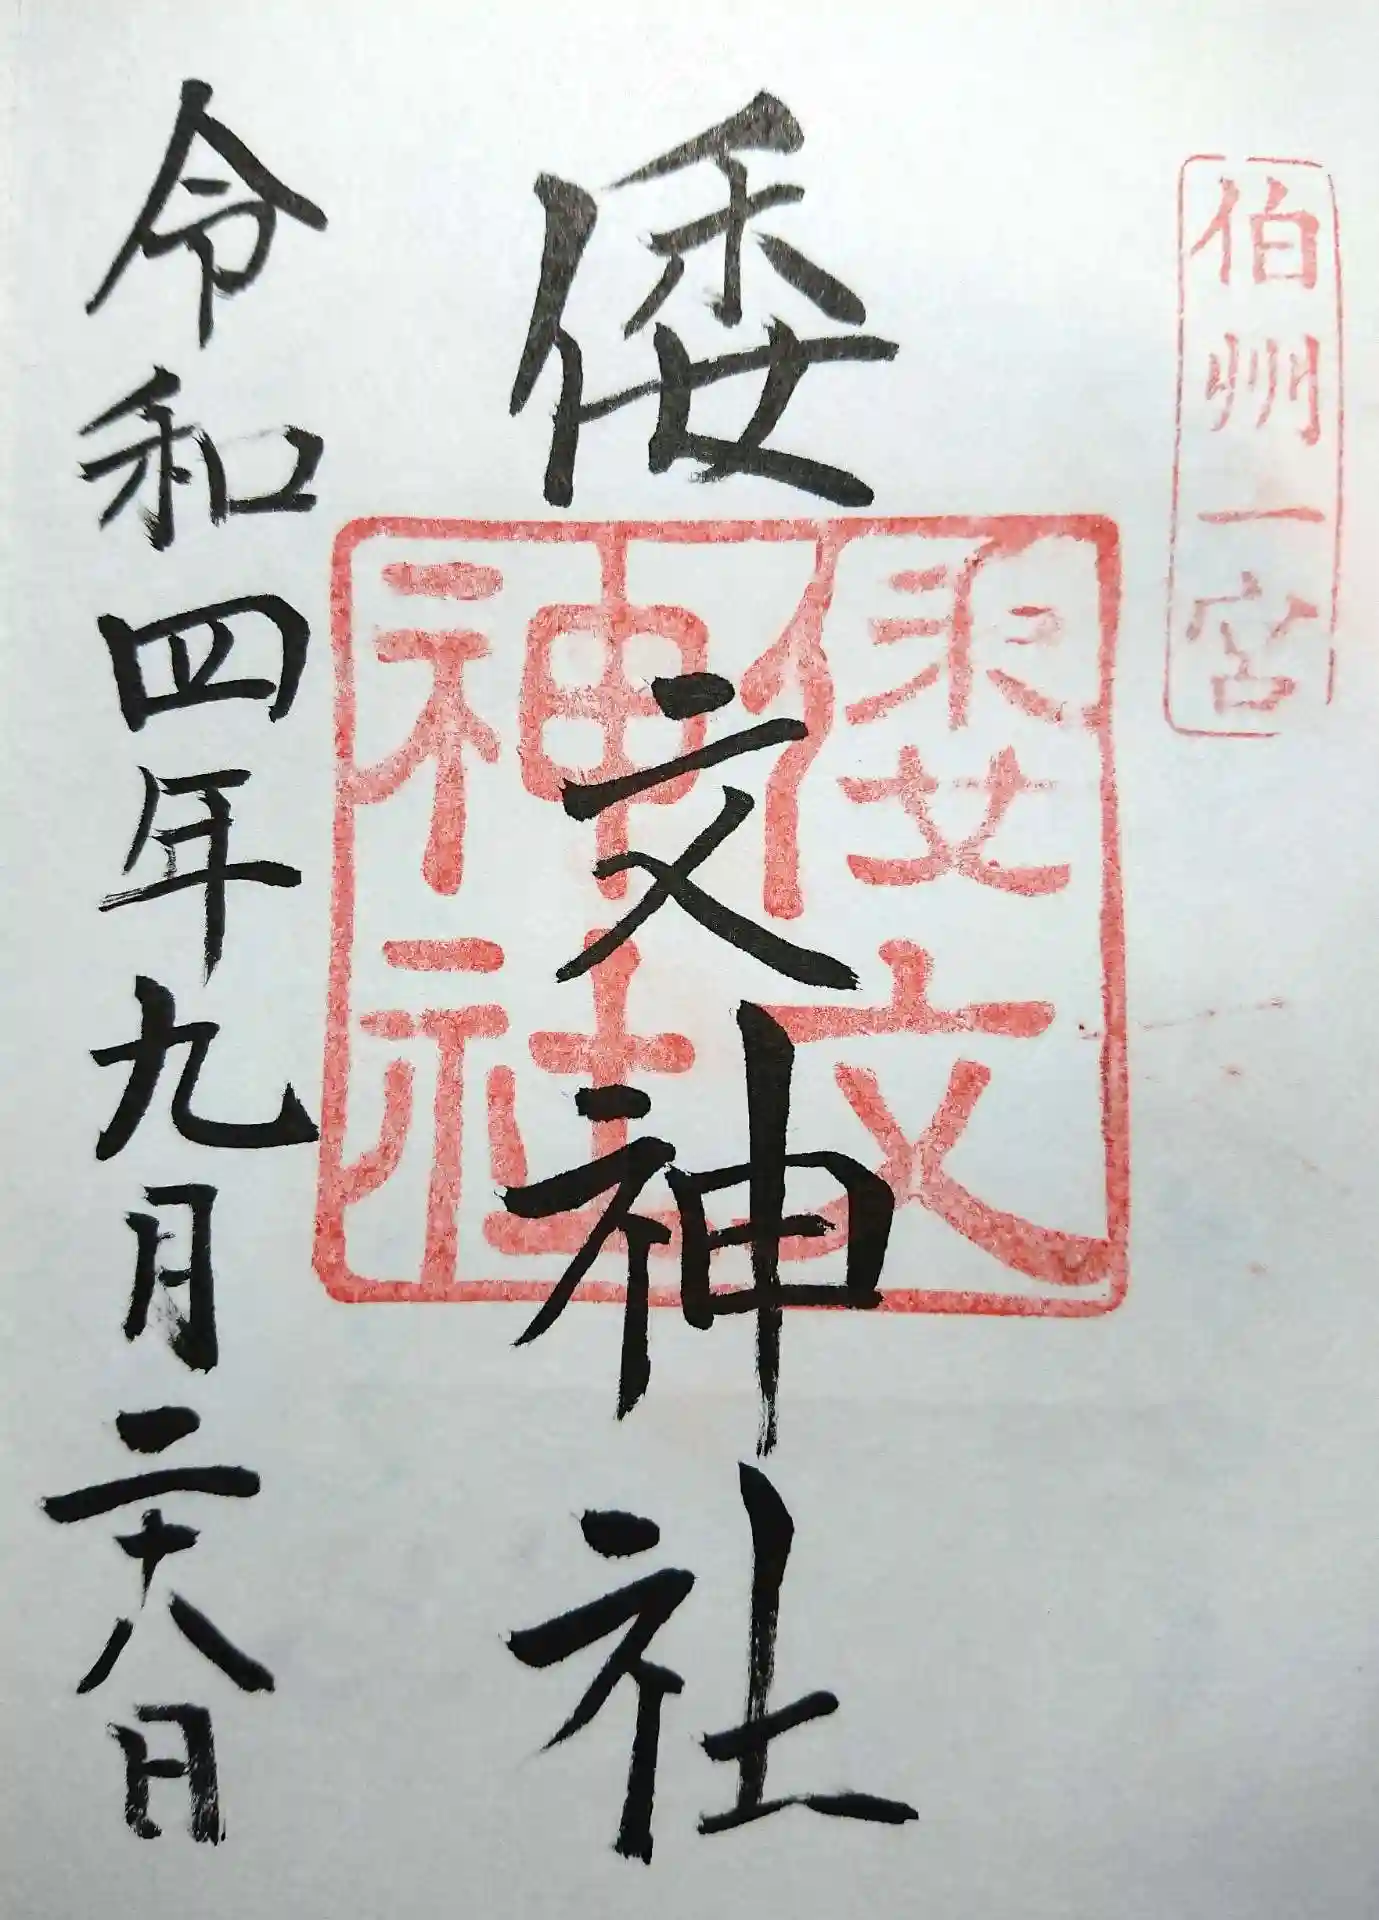 伯州一宮
倭文神社
倭文
神社
令和四年九月二十八日